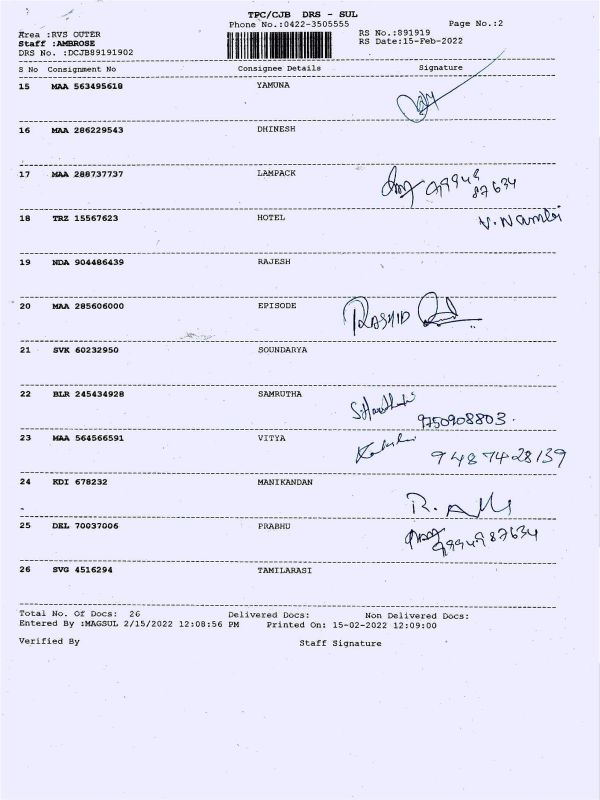 TPC/CJB DRS - SUL
Phone No.:0422-3505555 Page No.:2
Area :RVS OUTER RS No.:891919
Staff :AMBROSE RS Date:15-Feb-2022
DRS No. :DCJB89191902
S No Consignment No Consignee Details Signature
15 MAA 563495618 YAMUNA
16 MAA 286229543 DHINESH
17 MAA 288737737 LAMPACK
99949 87634
18 TRZ 15567623 HOTEL V. Nambi
19 NDA 904486439 RAJESH
20 MAA 285606000 EPISODE RASHID
21 SVK 60232950 SOUNDARYA
22 BLR 245434928 SAMRUTHA
9750908803.
23 MAA 564566591 VITYA
9487428139
24 KDI 678232 MANIKANDAN
25 DEL 70037006 PRABHU
9994987634
26 SVG 4516294 TAMILARASI
Total No. Of Docs: 26 Delivered Docs: Non Delivered Docs:
Entered By :MAGSUL 2/15/2022 12:08:56 PM Printed On: 15-02-2022 12:09:00
Verified By Staff Signature